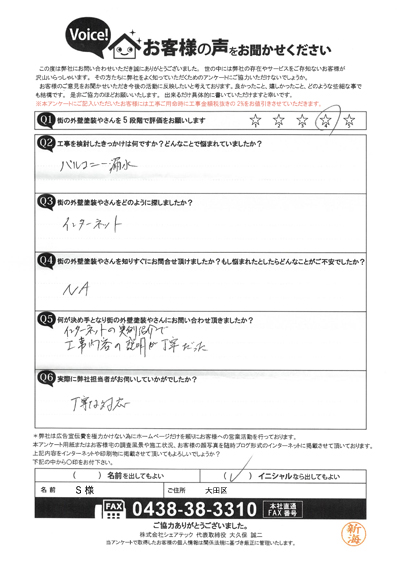 Voice! お客様の声をお聞かせください
この度は弊社にお問合せいただき誠にありがとうございました。世の中には弊社の存在やサービスをご存知ないお客様が
沢山いらっしゃいます。その方たちに弊社をよく知っていただくためのアンケートにご協力いただけないでしょうか。
お客様のご意見をお聞かせいただき今後の活動に反映したいと考えております。良かったこと、嬉しかったこと、どのような些細な事で
も結構です。是非ご協力のほどお願いいたします。出来るだけ具体的に書いていただけますと幸いです。
※本アンケートにご記入いただいたお客様には工事ご用命時に工事金額税抜きの2%をお値引きさせていただきます。
Q1 街の外壁塗装やさんを5段階で評価をお願いします ☆ ☆ ☆ ☆ ☆
Q2 工事を検討したきっかけは何ですか?どんなことで悩まれていましたか?
バルコニー漏水
Q3 街の外壁塗装やさんをどのように探しましたか?
インターネット
Q4 街の外壁塗装やさんを知りすぐにお問合せ頂けましたか?もし悩まれたとしたらどんなことがご不安でしたか?
NA
Q5 何が決め手となり街の外壁塗装やさんにお問い合わせ頂きましたか?
インターネットの実例紹介で
工事内容の説明が丁寧だった
Q6 実際に弊社担当者がお伺いしていかがでしたか?
丁寧な対応
※弊社は広告宣伝費を極力かけない為にホームページだけを頼りにお客様への営業活動を行っております。
本アンケート用紙またはお客様宅の調査風景や施工状況、お客様の顔写真を随時ブログ形式のインターネットに掲載させて頂いております。
上記内容をインターネットや印刷物に掲載させて頂いてもよろしいでしょうか?
下記の中から○印をお付け下さい。
( ) 名前を出してもよい (✓) イニシャルなら出してもよい
名前 S 様 ご住所 大田区
FAX 0438-38-3310 本社直通 FAX番号
ご協力ありがとうございました。
株式会社シェアテック 代表取締役 大久保 誠二
当アンケートで取得したお客様の個人情報は関係法規に基づき厳正に管理いたします。
新海